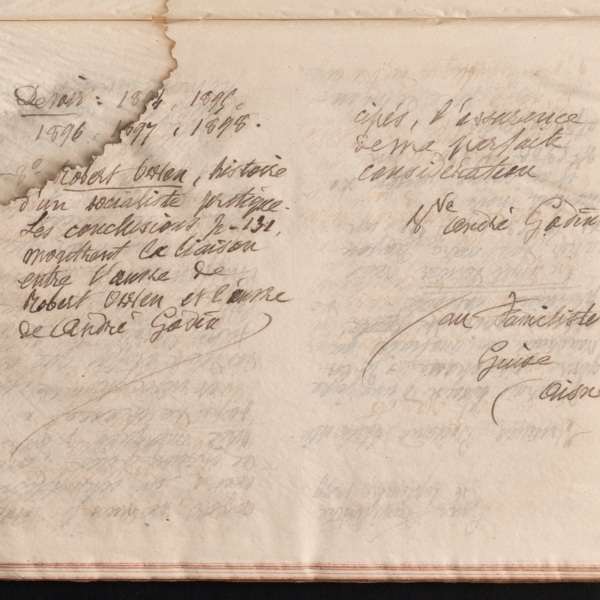 Devoir : 1894, 1895,
1896, 1897, 1898.
8° Robert Owen, histoire
d'un socialiste pratique.
Les conclusions, p. 131,
montrent la liaison
entre l'œuvre de
Robert Owen et l'œuvre
de André Godin
cipés, l'assurance
de ma parfaite
considération
Vve André Godin
au Familistè
Guise
Aisne